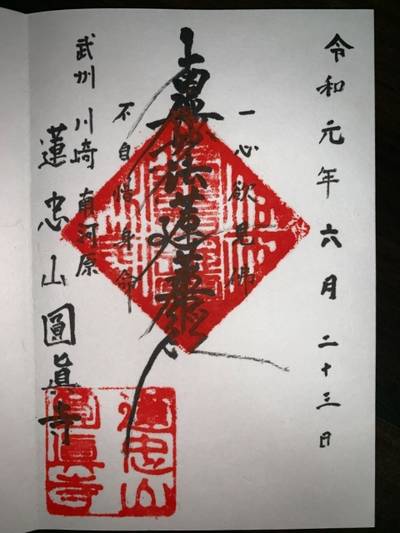 令和元年六月二十三日
一心欲見佛
南無妙法蓮華経
不自惜身命
武州川崎南河原
蓮忠山圓眞寺
蓮忠山
圓眞寺